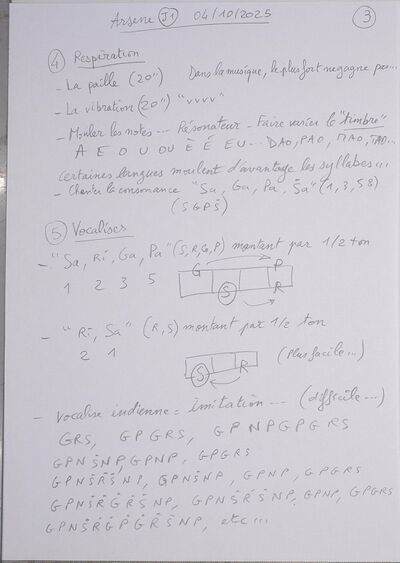 Arsene J1 04/10/2025 3
4 Respiration
- La paille (20") Dans la musique, le plus fort ne gagne pas...
- La vibration (20") "vvvv"
- Mouler les notes --- Résonateur - Faire varier le "timbre"
A E O U OU È É EU... DAO, PAO, MAO, TAO...
certaines langues moulent d'avantage les syllabes...
- Chanter la consonance "Sa, Ga, Pa, Ṡa" (1, 3, 5 8)
(S G P Ṡ)
5 Vocalises
- "Sa, Ri, Ga, Pa" (S, R, G, P) montant par 1/2 ton
1 2 3 5
G P
S R
- "Ri, Sa" (R, S) montant par 1/2 ton
2 1
(Plus facile...)
S R
- Vocalise indienne = Imitation --- (difficile...)
GRS, GPGRS, GPNPGPGRS
GPNṠNP, GPNP, GPGRS
GPNṠṘṠNP, GPNṠNP, GPNP, GPGRS
GPNṠṘĠṘṠNP, GPNṠṘṠNP, GPNP, GPGRS
GPNṠṘĠṖĠṘṠNP, etc...